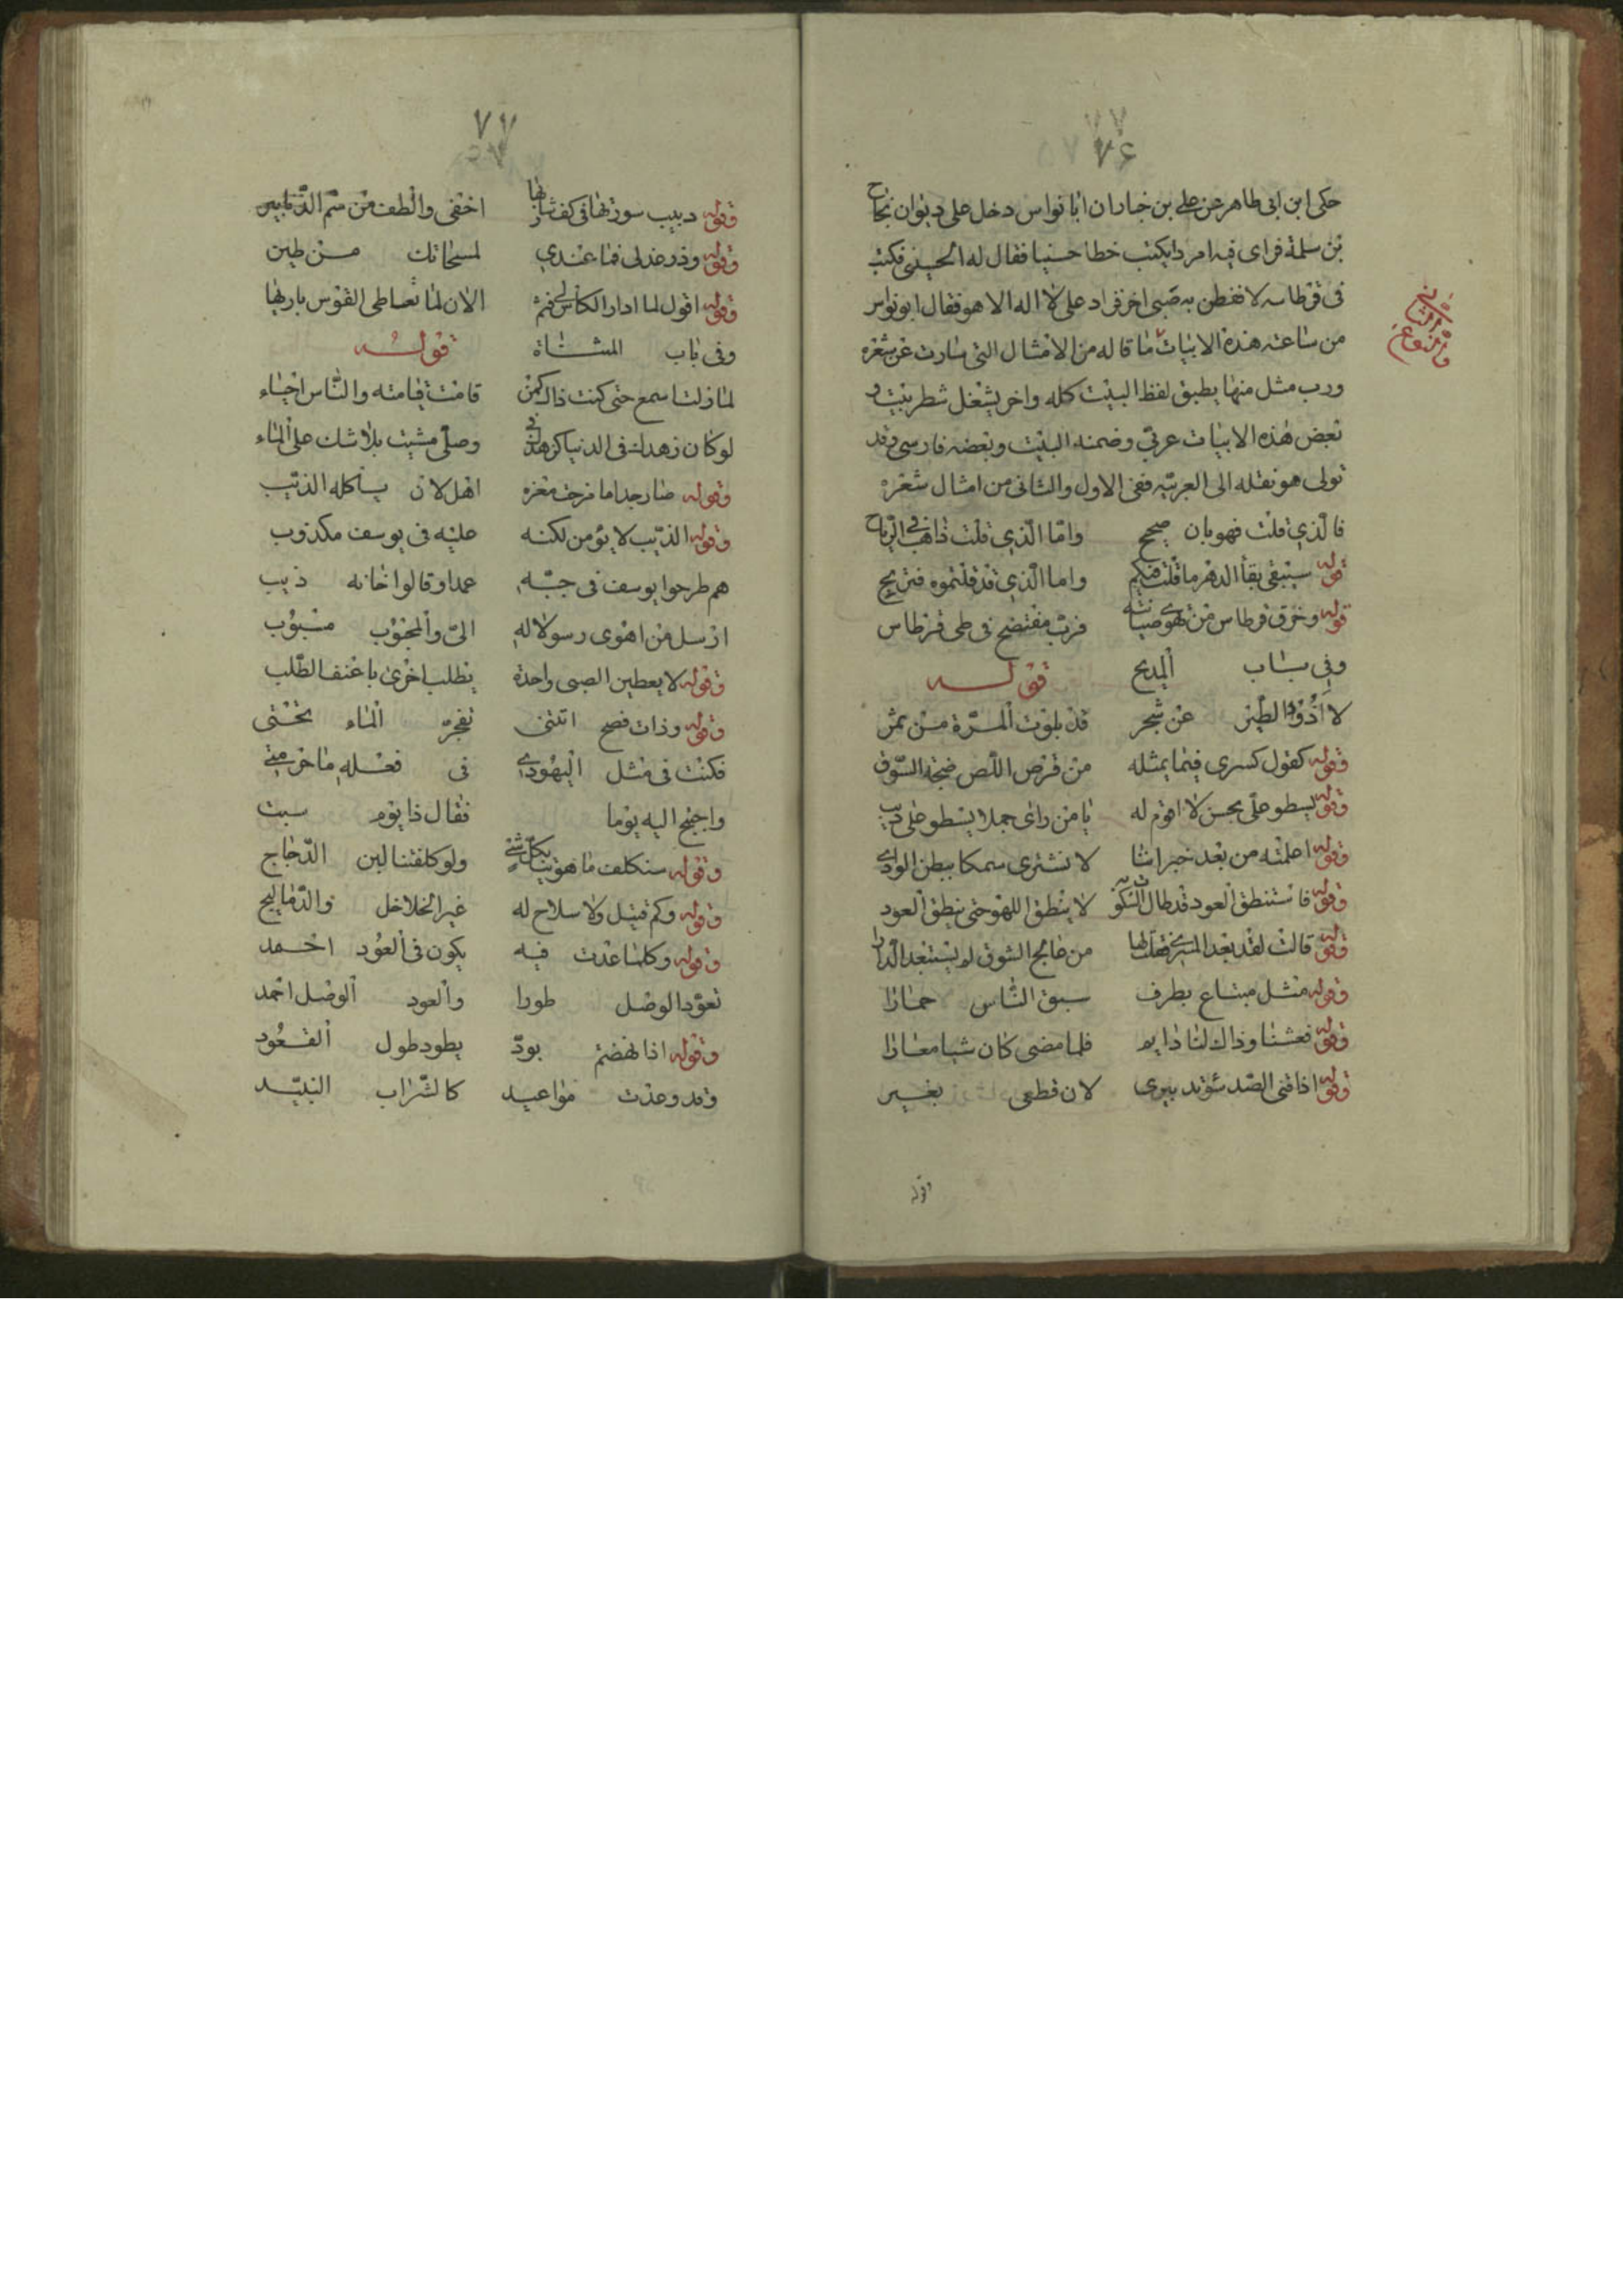 ٧٦
حكى ابن ابى طاهر عن على بن ان ابا نواس دخل على ديوان نجاح
بن سلمة فراى فيه امردا يكتب خطا حسنا فقال له فكتب
فى قرطاس لا تفطن به صبى اخر فزاد على لا اله الا هو فقال ابو نواس
من ساعته هذه الابيات ما قاله من الامثال التى سارت عن شعره
ورب مثل منها يطبق لفظ البيت كله واخر يشغل شطر بيت و
بعض هذه الابيات عربى وضمنه البيت وبعضه فارسى وقد
تولى هو نقله الى العربيه ففى الاول والثانى من امثال شعره
فالذي قلت فهو بان صحيح وامّا الّذي قلت ذاهب فى الرّياح
قوله سيبقى بقا الدهر ما قلت فيكم واما الّذي قد قلتموه فريح
قوله وخرق قرطاس من تهوى صيانته فربّ مفتضح فى طى قرطاس
وفى باب المديح قوله
لا اذُوْد الطّير عن شجر قد بلوت المرّة من ثمر
وقوله كقول كسرى فيما يمثله من فرص اللّص ضجة السّوق
وقوله يسطو على بحسن لا اقوم له يا من راى حملا يسطو على ذيب
وقوله اعلمته من بعد خبر اننا لا نشترى سمكا ببطن الوادي
وقوله فاستنطق العود قد طال السّكوت به لا ينطق اللهو حتى ينطق العود
وقوله قالت لقد بعد المسرى فقلت لها من عالج الشوق لم يستبعد الدّارا
وقوله مثل مبتاع بطرف سبق النّاس حمارا
وقوله فعشنا وذاك لنا دايم فلما مضى كان شيا معارا
وقوله اذا فنى الصّد
لان قطعى بغير
وقوله
٧٧
وقوله دبيب سورتها فى كف شاربها اخفى والطف من سمّ الدّنابير
وقوله وذر عذلى فما عندي لمسحاتك من طين
وقوله اقول لما ادار الكاس لى قثم الان لما تعاطى القوس باريها
وفى باب قوله
لما زلت اسمع حتى كنت ذاك بمن قامت قيامته والنّاس احياء
لو كان زهدك فى الدنيا كزهدك فى وصلى مشيت بلا شك على الماء
وقوله صار جدا ما مزحت به
اهل لان ياكله الذيب
وقوله الذيب لا يؤمن لكنه عليه فى يوسف مكذوب
هم طرحوا يوسف فى جبّه عمدا وقالوا خانه ذيب
ارسل من اهوى رسولا له الىّ والمحبوب منسوب
وقوله لا يعطين الصبى واحدة يطلب اخرى باعنف الطّلب
وقوله وذات نصح اتتنى تفجرّ الماء تحتى
فكنت فى مثل اليهودي فى فعله
واجنح اليه يوما فقال ذا يوم سبت
وقوله سنكلف ما هويت بكل شئ ولو كلفتنا لبن الدّجاج
وقوله وكم قتيل ولا سلاح له غير الخلاخل والدّماليج
وقوله وكلما عدت فيه يكون فى العُود احمد
تعوّد الوصل طورا والعود الوصل احمد
وقوله اذا نهضتم بودّ يطود طول القعُود
وقد وعدت مواعيد كالشّراب البّيد